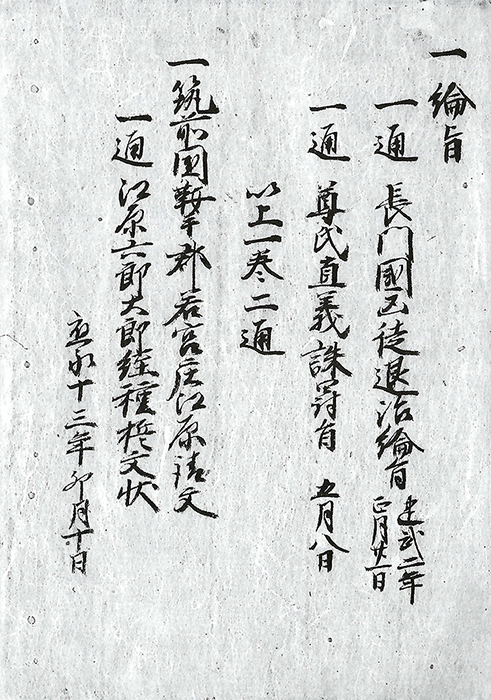 一綸旨
一通 長門國凶徒退治綸旨 建武二年
正月廿一日
一通 尊氏直義誅罸旨 五月八日
以上一巻二通
一筑前國鞍手郡若宮庄江原請文
一通 江原六郎太郎経種捧文状
应永十三年卯月十日